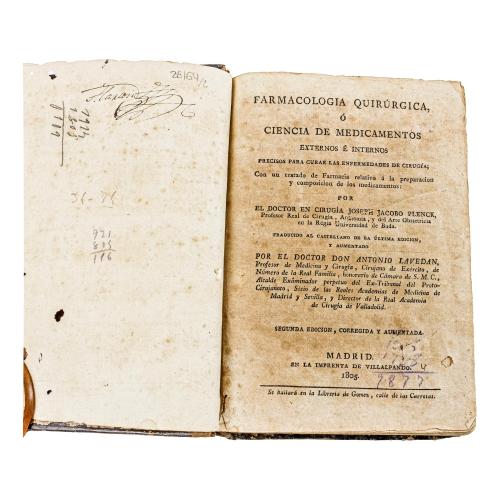 28/64/2
921
FARMACOLOGIA QUIRÚRGICA,
ó
CIENCIA DE MEDICAMENTOS
EXTERNOS É INTERNOS
PRECISOS PARA CURAR LAS ENFERMEDADES DE CIRUGÍA;
Con un tratado de Farmacia relativo á la preparacion
y composicion de los medicamentos:
POR
EL DOCTOR EN CIRUGÍA JOSEPH JACOBO PLENCK,
Profesor Real de Cirugía, Anatomía, y del Arte Obstetricia
en la Regia Universidad de Buda.
TRADUCIDO AL CASTELLANO DE LA ÚLTIMA EDICION,
Y AUMENTADO
POR EL DOCTOR DON ANTONIO LAVEDAN,
Profesor de Medicina y Cirugía, Cirujano de Exército, de
Número de la Real Familia, honorario de Cámara de S. M. C.,
Alcalde Exâminador perpetuo del Ex-Tribunal del Proto-
Cirujanato, Socio de las Reales Academias de Medicina de
Madrid y Sevilla, y Director de la Real Academia
de Cirugía de Valladolid.
SEGUNDA EDICION, CORREGIDA Y AUMENTADA.
MADRID.
EN LA IMPRENTA DE VILLALPANDO.
1805.
9877
Se hallará en la Librería de Gomez, calle de las Carretas.